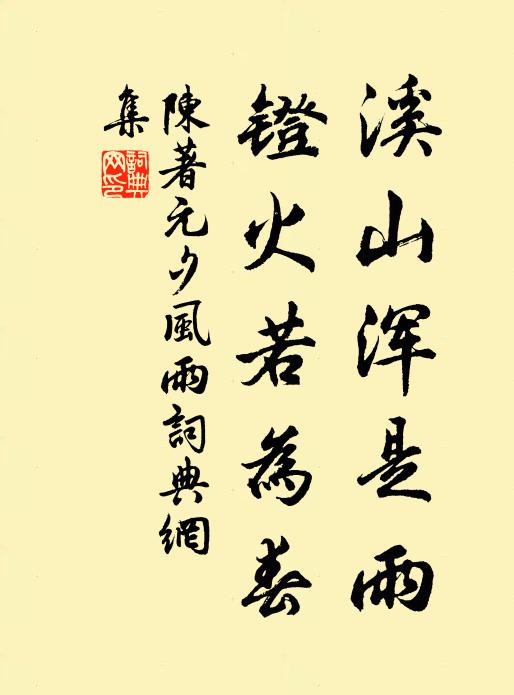 溪山浑是雨
镫火若為春
陳著元夕風雨詞典網
集
詞典
网印